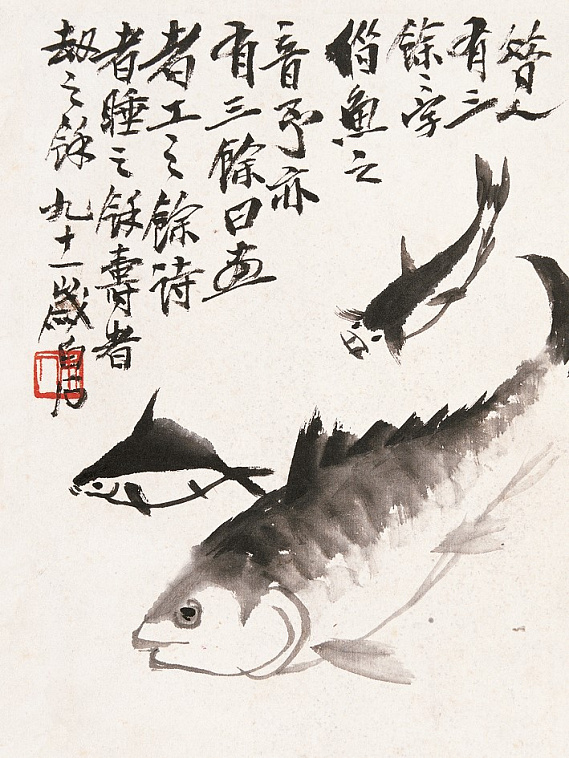 昔人
有三
餘之字
借魚之
音予亦
有三餘曰畫
者工之餘詩
者睡之餘壽者
劫之餘 九十一歲白石